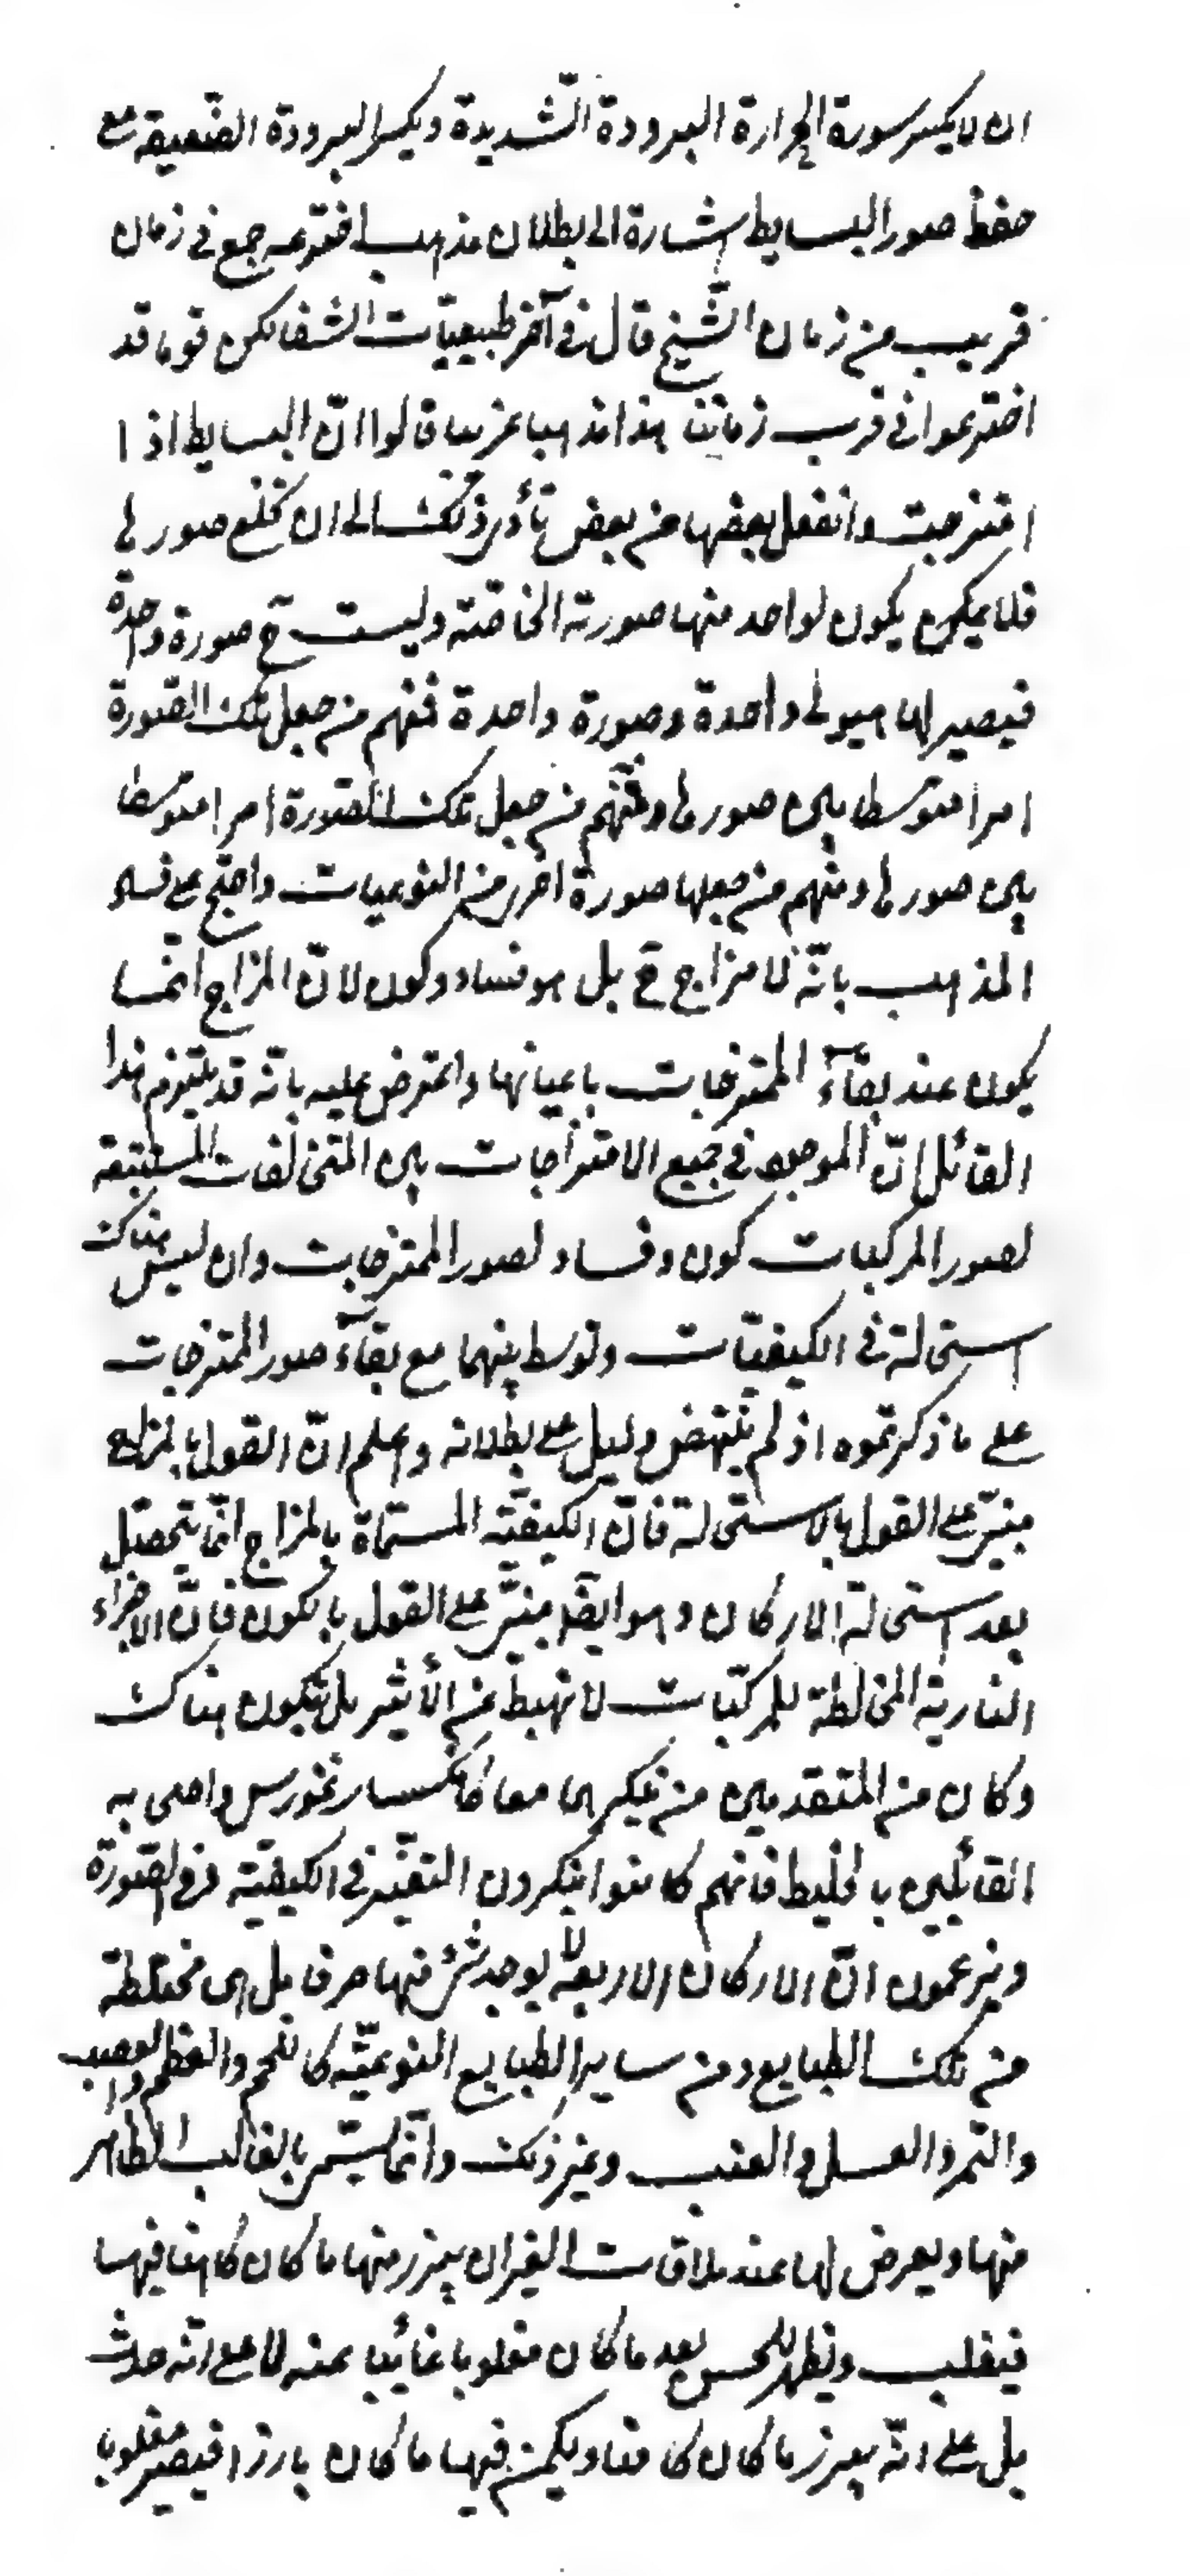 ان لا يكسر سورة الحرارة البرودة الشّديدة ويكسر البرودة الضّعيفة مع
حفظ صور البسايط اشارة الى بطلان مذهب اخترعه جمع فى زمان
قريب من زمان الشّيخ قال فى آخر طبيعيّات الشفا لكن قوما قد
اخترعوا فى قرب زماننا هذا مذهبا غريبا قالوا انّ البسايط اذا
امتزجت وانفعل بعضها من بعض تأدى ذلك الى ان تخلع صورها
فلا يكون لواحد منها صورته الخاصّة وليست ح صورة واحدة
فيصير لها هيولى واحدة وصورة واحدة فمنهم من جعل تلك الصّورة
امرا متوسطا بين صورها ومنهم من جعل تلك الصّورة امرا متوسطا
بين صورها ومنهم من جعلها صورة اخرى من النوعيات واحتج على فساد
المذهب بانّه لا مزاج ح بل هو فساد وكون لانّ المزاج انّما
يكون عند بقآء الممتزجات باعيانها واعترض عليه بانّه قد يلتزم هذا
القائل انّ الموجود فى جميع الامتزاجات بين المتخالفات المستتبعة
لصور المركبات كون وفساد لصور الممتزجات وان ليس هناك
استحالة فى الكيفيّات وتوسط بينهما مع بقآء صور الممتزجات
على ما ذكرتموه اذ لم ينتهض دليل على بطلانه واعلم انّ القول بالمزاج
مبنىّ على القول بالاستحالة فانّ الكيفيّة المسمّاة بالمزاج انّما يتحصّل
بعد استحالة الاركان وهو ايضا مبنىّ على القول بالكون فانّ الاجزاء
النارية المخالطة للمركّبات لا تهبط عن الأثير بل تتكون هناك
وكان من المتقدمين من ينكرهما معا كانكساغورس واصحابه
القائلين بالخليط فانهم كانوا ينكرون التغيّر فى الكيفيّة وفى الصّورة
ويزعمون انّ الاركان الاربعة لا يوجد شئ منها صرفا بل هى مختلطة
من تلك الطبايع ومن ساير الطبايع النوعيّة كاللحم والعظم والعصب
والتمر والعسل والعنب وغير ذلك وانّما يسمّى بالغالب الظاهر
منها ويعرض لها عند ملاقات الغير ان يبرز منها ما كان كامنا فيها
فيغلب ويظهر للحس بعد ما كان مغلوبا غائبا عنه لا على انّه حدث
بل على انّه يبرز ما كان كامنا ويكمن فيها ما كان بارزا فيصير مغلوبا